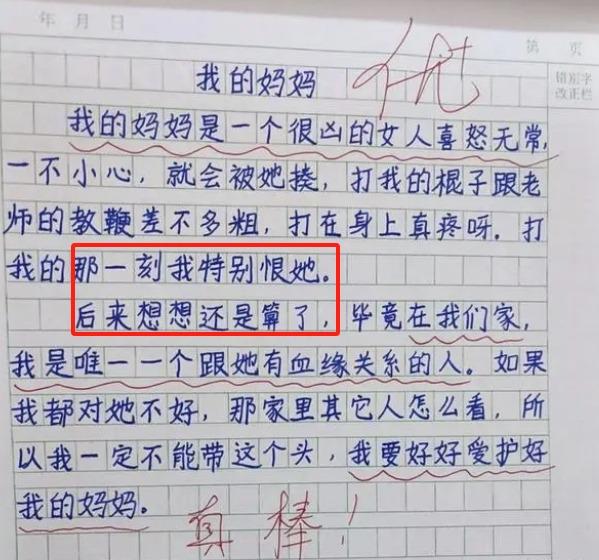 年 月 日
第 页
我的妈妈 优
错别字
改正栏
我的妈妈是一个很凶的女人喜怒无常,
一不小心,就会被她揍,打我的棍子跟老
师的教鞭差不多粗,打在身上真疼呀.打
我的那一刻我特别恨她。
后来想想还是算了,毕竟在我们家,
我是唯一一个跟她有血缘关系的人。如果
我都对她不好,那家里其它人怎么看,所
以我一定不能带这个头,我要好好爱护好
我的妈妈。
真棒!